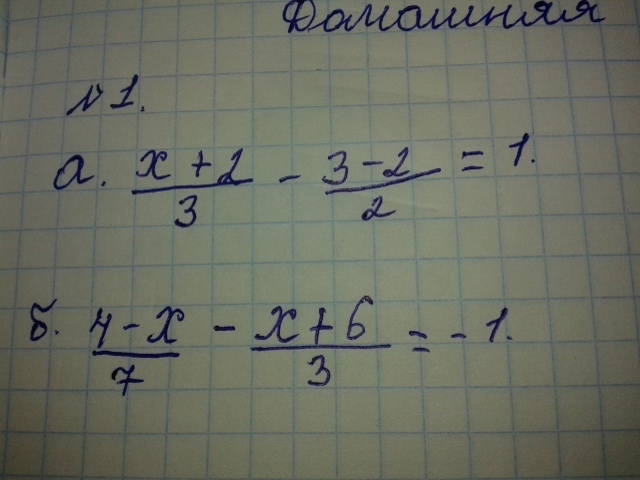 Домашняя
№1.
а. (x+2)/3 - (3-2)/2 = 1.
б. (4-x)/7 - (x+6)/3 = -1.